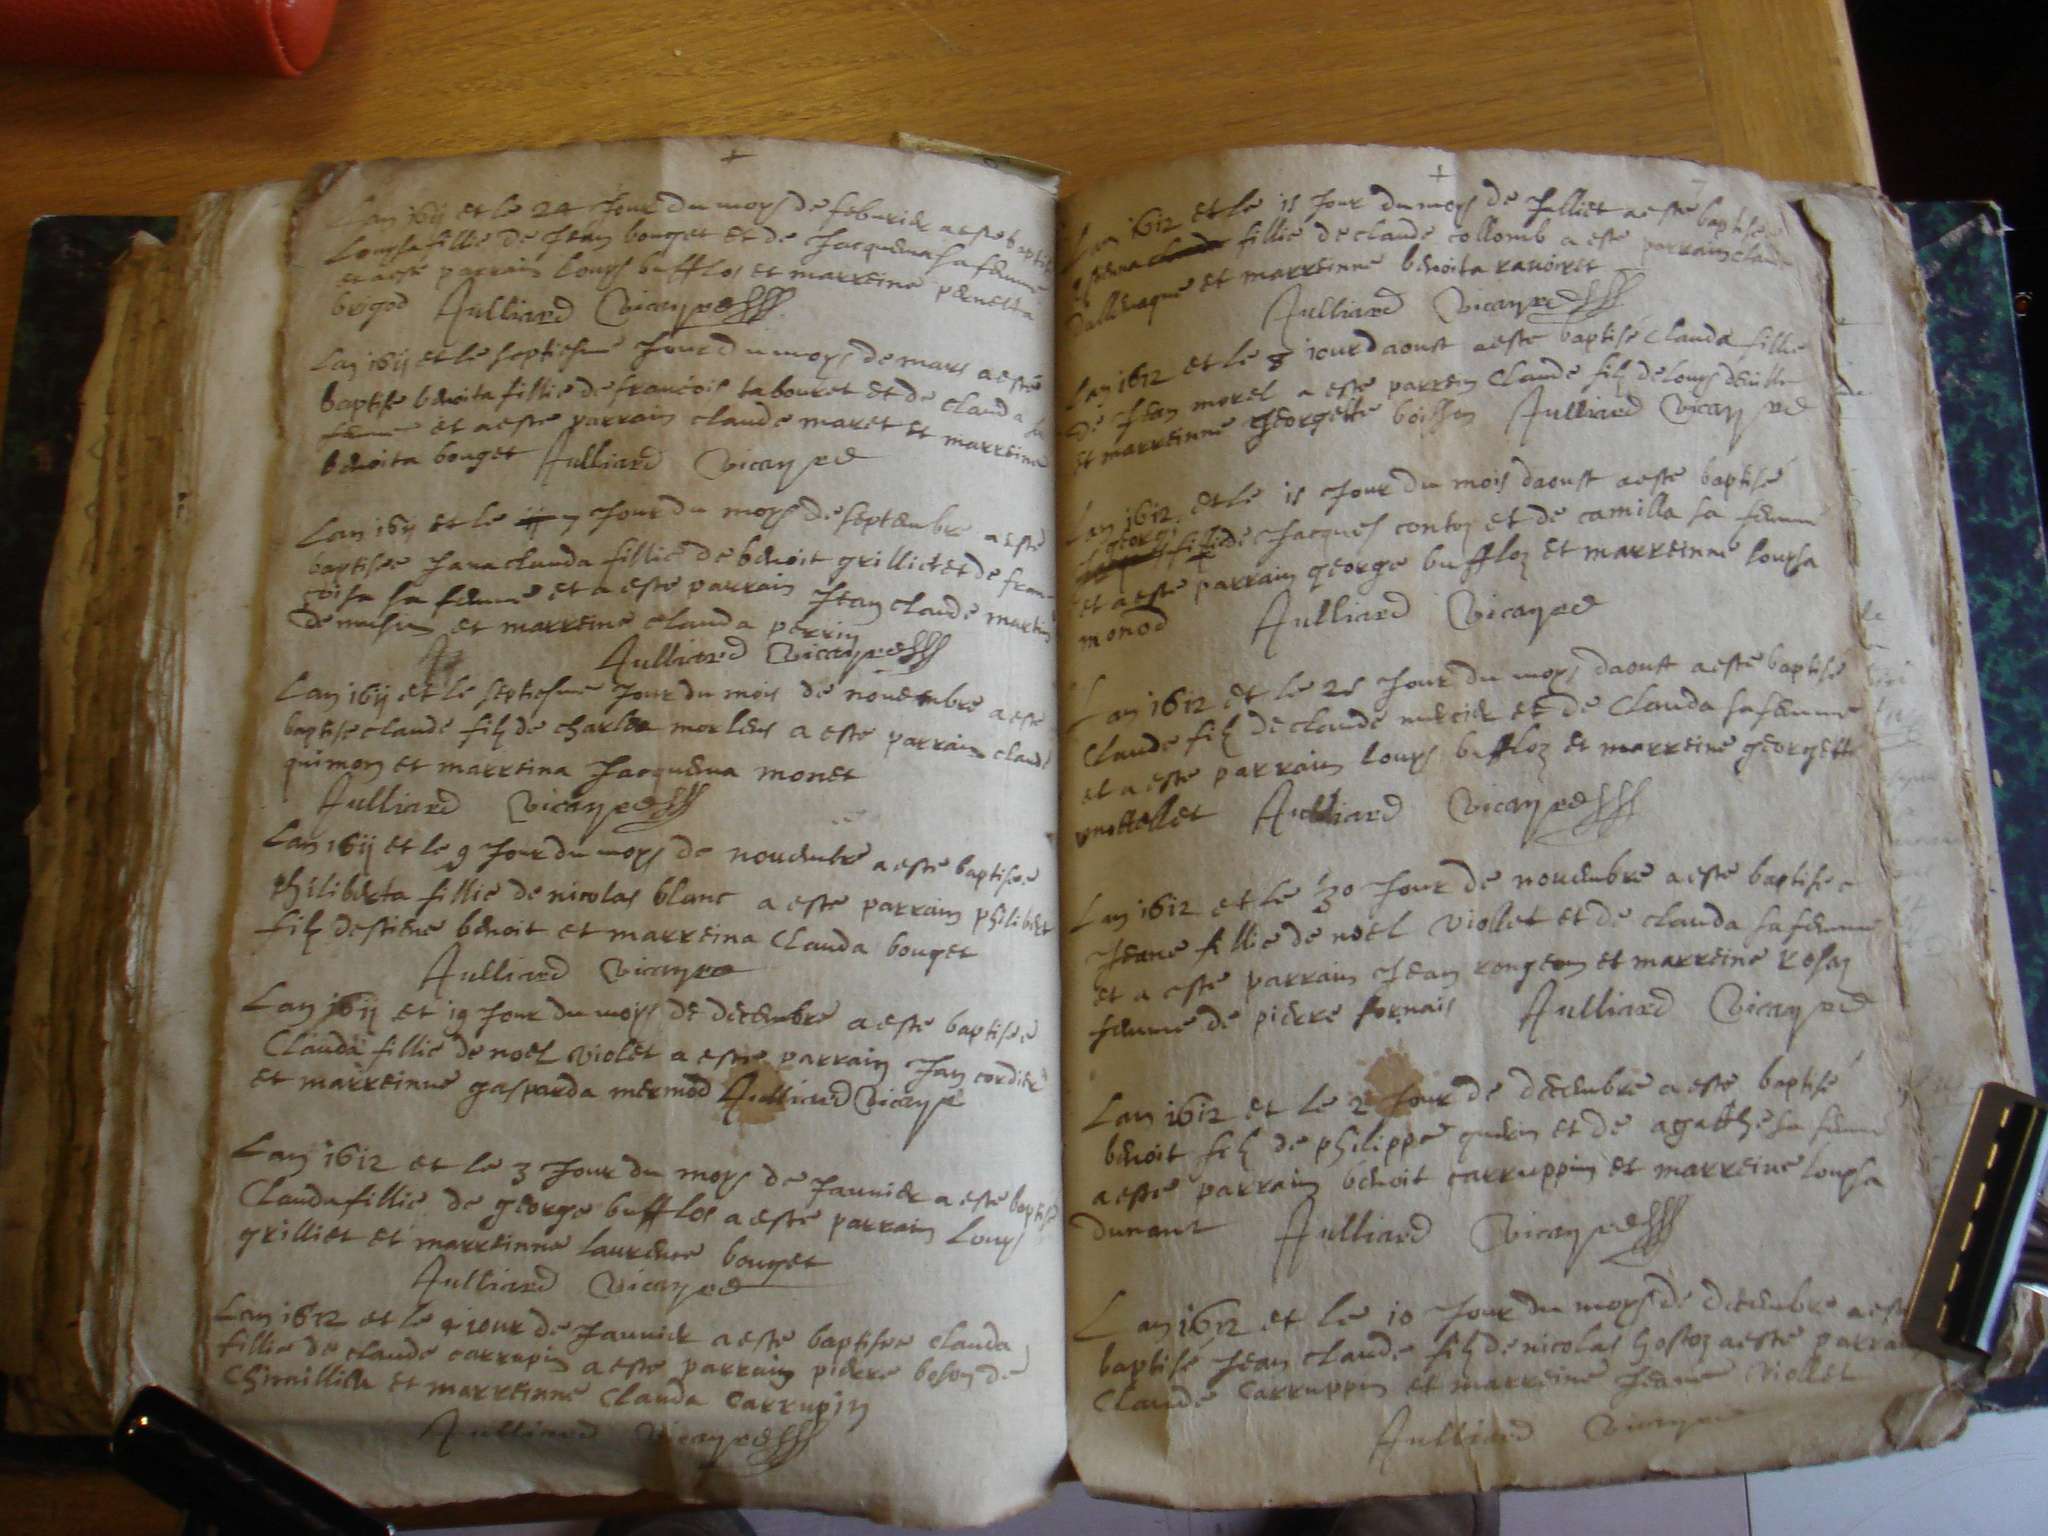 +
Lan 16ij et le 24 Jour du moys de feburier a este baptise
Loupsa fillie de Jean bouget et de Jacquema sa femme
et a este parrain Louys bufflos et marreine pernetta
brigod Julliard vicayre
Lan 16ij et le septiesme Jour du moys de mars a esté
baptise benoita fillie de francois tabouret et de clauda sa
femme et a este parrain claude maret et marreina
benoita bouget Julliard vicayre
Lan 16ij et le Jour du moys de septembre a esté
baptisee Jana clauda fillie de benoit grilliet et de fran-
coisa sa femme et a este parrain Jean claude martin
et marreine clauda perrin
Julliard vicayre
Lan 16ij et le septiesme Jour du mois de nouembre a este
baptise claude filz de charles morlens a este parrain claude
quimon et marreina Jacquema monet
Julliard vicayre
Lan 16ij et le 9 Jour du moys de nouembre a este baptisee
philiberta fillie de nicolas blanc a este parrain philibert
filz destiene benoit et marreina Clauda bouget
Julliard vicayre
Lan 16ij et 19 Jour du moys de decembre a este baptisee
Clauda fillie de noel violet a este parrain Jan cordier
et marreinne gasparda mermod Julliard vicayre
Lan 1612 et le 3 Jour du moys de Januier a este baptise
Clauda fillie de george bufflos a este parrain Louys
grilliet et marreinne laurence bouget
Julliard vicayre
Lan 1612 et le 4 iour de Januier a este baptisee clauda
fillie de claude carrupin a este parrain pierre beson de
Chimillien et marreinne Clauda Carrupin
Julliard vicayre
+
Lan 1612 et le 15 Jour du moys de Julliet a este baptisee
fillie de claude collomb a este parrain claude
Dallemagne et marreinne benoita rauoiret
Julliard vicayre
Lan 1612 et le 8 iour daoust a este baptisé Clauda fillie
de Jean morel a este parrein Claude filz de Louys
et marreinne Georgette boisson Julliard vicayre
Lan 1612 et le 15 Jour du mois daoust a este baptisé
george filz de Jacques contoz et de camilla sa femme
et a este parrain george buffloz et marreinne loupsa
monod Julliard vicayre
Lan 1612 et le 25 Jour du moys daoust a este baptisé
Claude filz de claude mercier et de Clauda sa femme
et a este parrain louys buffloz et marreine georgette
Julliard vicayre
Lan 1612 et le 30 Jour de nouembre a este baptisee
Jeane fillie de noel Viollet et de clauda sa femme
et a este parrain Jean rongeon et marreine rosaz
femme de pierre fornais Julliard vicayre
Lan 1612 et le 2 Jour de decembre a esté baptisé
benoit filz de philippe et de agatthe sa femme
a este parrain benoit carruppin et marreine loupsa
dunant Julliard vicayre
Lan 1612 et le 10 Jour du moys de decembre a este
baptisé Jean claude filz de nicolas hostoz a este parrain
Claude Carruppin et marreine Jeane Viollet
Julliard vicayre